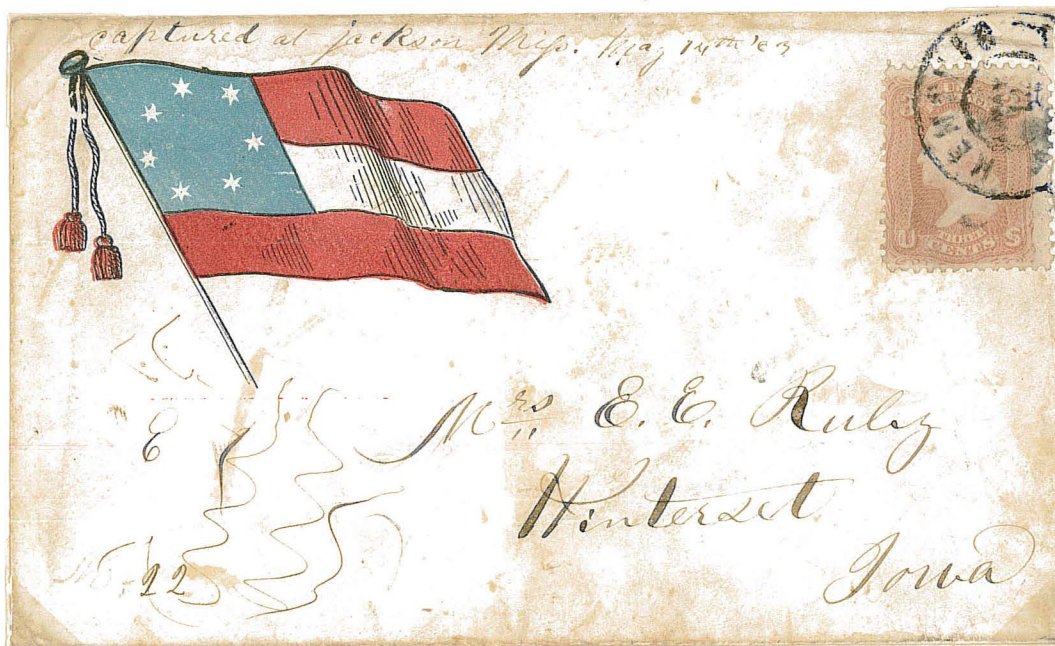 captured at jackson Miss. May 14th '63
MEMPHIS
U S
THREE
CENTS
Mrs E. E. Ruby
Winterset
Iowa
E
22